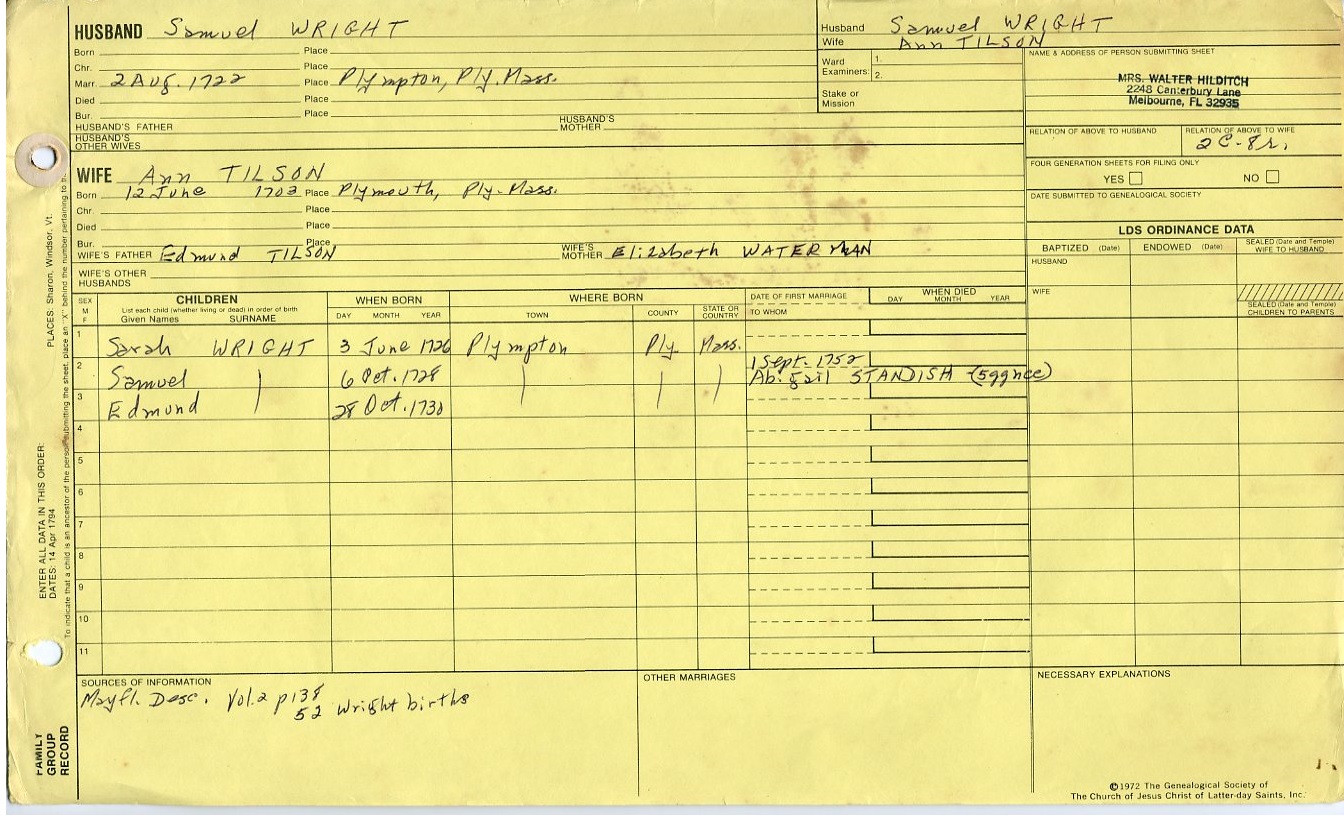 HUSBAND Samuel WRIGHT
Born Place
Chr. Place
Marr. 2 Aug. 1722 Place Plympton, Ply. Mass.
Died Place
Bur. Place
HUSBAND'S FATHER HUSBAND'S MOTHER
HUSBAND'S OTHER WIVES
Husband Samuel WRIGHT
Wife Ann TILSON
Ward Examiners: 1.
2.
Stake or Mission
NAME & ADDRESS OF PERSON SUBMITTING SHEET
MRS. WALTER HILDITCH
2248 Canterbury Lane
Melbourne, FL 32935
RELATION OF ABOVE TO HUSBAND RELATION OF ABOVE TO WIFE
2C-8r.
FOUR GENERATION SHEETS FOR FILING ONLY
YES NO
DATE SUBMITTED TO GENEALOGICAL SOCIETY
WIFE Ann TILSON
Born 12 June 1703 Place Plymouth, Ply. Mass.
Chr. Place
Died Place
Bur. Place
WIFE'S FATHER Edmund TILSON WIFE'S MOTHER Elizabeth WATERMAN
WIFE'S OTHER HUSBANDS
LDS ORDINANCE DATA
BAPTIZED (Date) ENDOWED (Date) SEALED (Date and Temple) WIFE TO HUSBAND
HUSBAND
WIFE
SEALED (Date and Temple) CHILDREN TO PARENTS
SEX M F CHILDREN WHEN BORN WHERE BORN DATE OF FIRST MARRIAGE WHEN DIED
List each child (whether living or dead) in order of birth
Given Names SURNAME DAY MONTH YEAR TOWN COUNTY STATE OR COUNTRY TO WHOM DAY MONTH YEAR
1 Sarah WRIGHT 3 June 1726 Plympton Ply. Mass.
2 Samuel 6 Oct. 1728 1 Sept. 1752
Abigail STANDISH (5ggnce)
3 Edmund 28 Oct. 1730
4
5
6
7
8
9
10
11
SOURCES OF INFORMATION
Mayfl. Desc. Vol. 2 p 138
52 Wright births
OTHER MARRIAGES
NECESSARY EXPLANATIONS
©1972 The Genealogical Society of
The Church of Jesus Christ of Latter-day Saints, Inc.
PLACES: Sharon, Windsor, Vt.
ENTER ALL DATA IN THIS ORDER:
DATES: 14 Apr 1794
To indicate that a child is an ancestor of the person submitting the sheet, place an "X" behind the number pertaining to
FAMILY GROUP RECORD